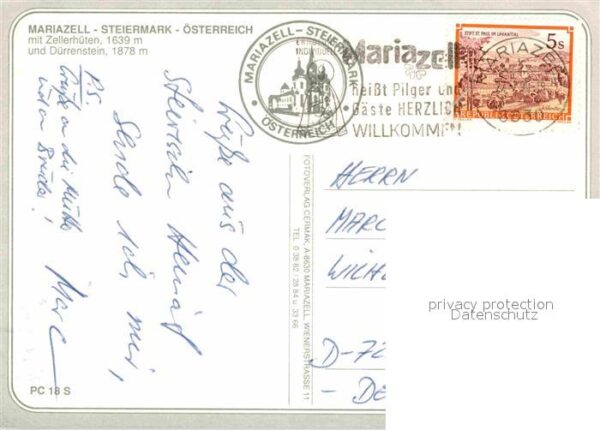 MARIAZELL - STEIERMARK - ÖSTERREICH
mit Zellerhüten, 1639 m
und Dürrenstein, 1878 m
MARIAZELL - STEIERMARK
ÖSTERREICH
Mariazell
heißt Pilger und
Gäste HERZLICH
WILLKOMMEN!
STIFT ST. PAUL IM LAVANTTAL
5s
REPUBLIK ÖSTERREICH
MARIAZELL
Grüße aus der
Steirischen Heimat
Sende ich, mir,
Marc
P.S.
Grüße an die Mutti
und den Bruder!
FOTOVERLAG CERMAK, A-8630 MARIAZELL, WIENERSTRASSE 11
TEL. 0 38 82 / 28 84 u. 33 66
HERRN
MARC
WILH
D-72
- DE
privacy protection
Datenschutz
PC 18 S